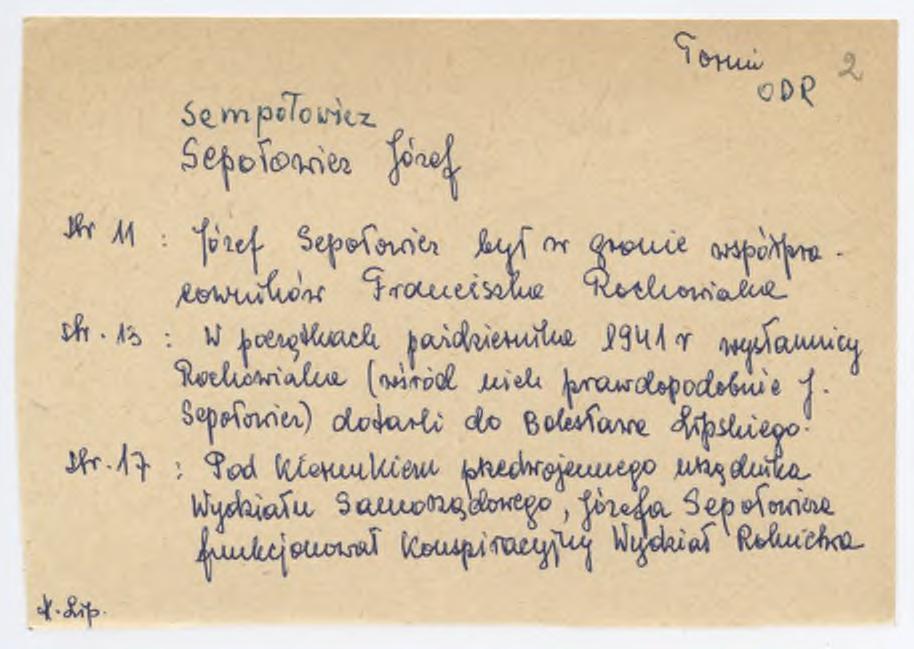 Toruń 2
ODR
Sempołowicz
Sepołowicz Józef
Str 11 : Józef Sepołowicz był w gronie współpra-
cowników Franciszka Rochowiaka
Str. 13 : W początkach października 1941 r wysłannicy
Rochowiaka (wśród nich prawdopodobnie J.
Sepołowicz) dotarli do Bolesława Lipskiego.
Str. 17 : Pod kierunkiem przedwojennego urzędnika
Wydziału Samorządowego, Józefa Sepołowicza
funkcjonował Konspiracyjny Wydział Rolnictwa
Lip.